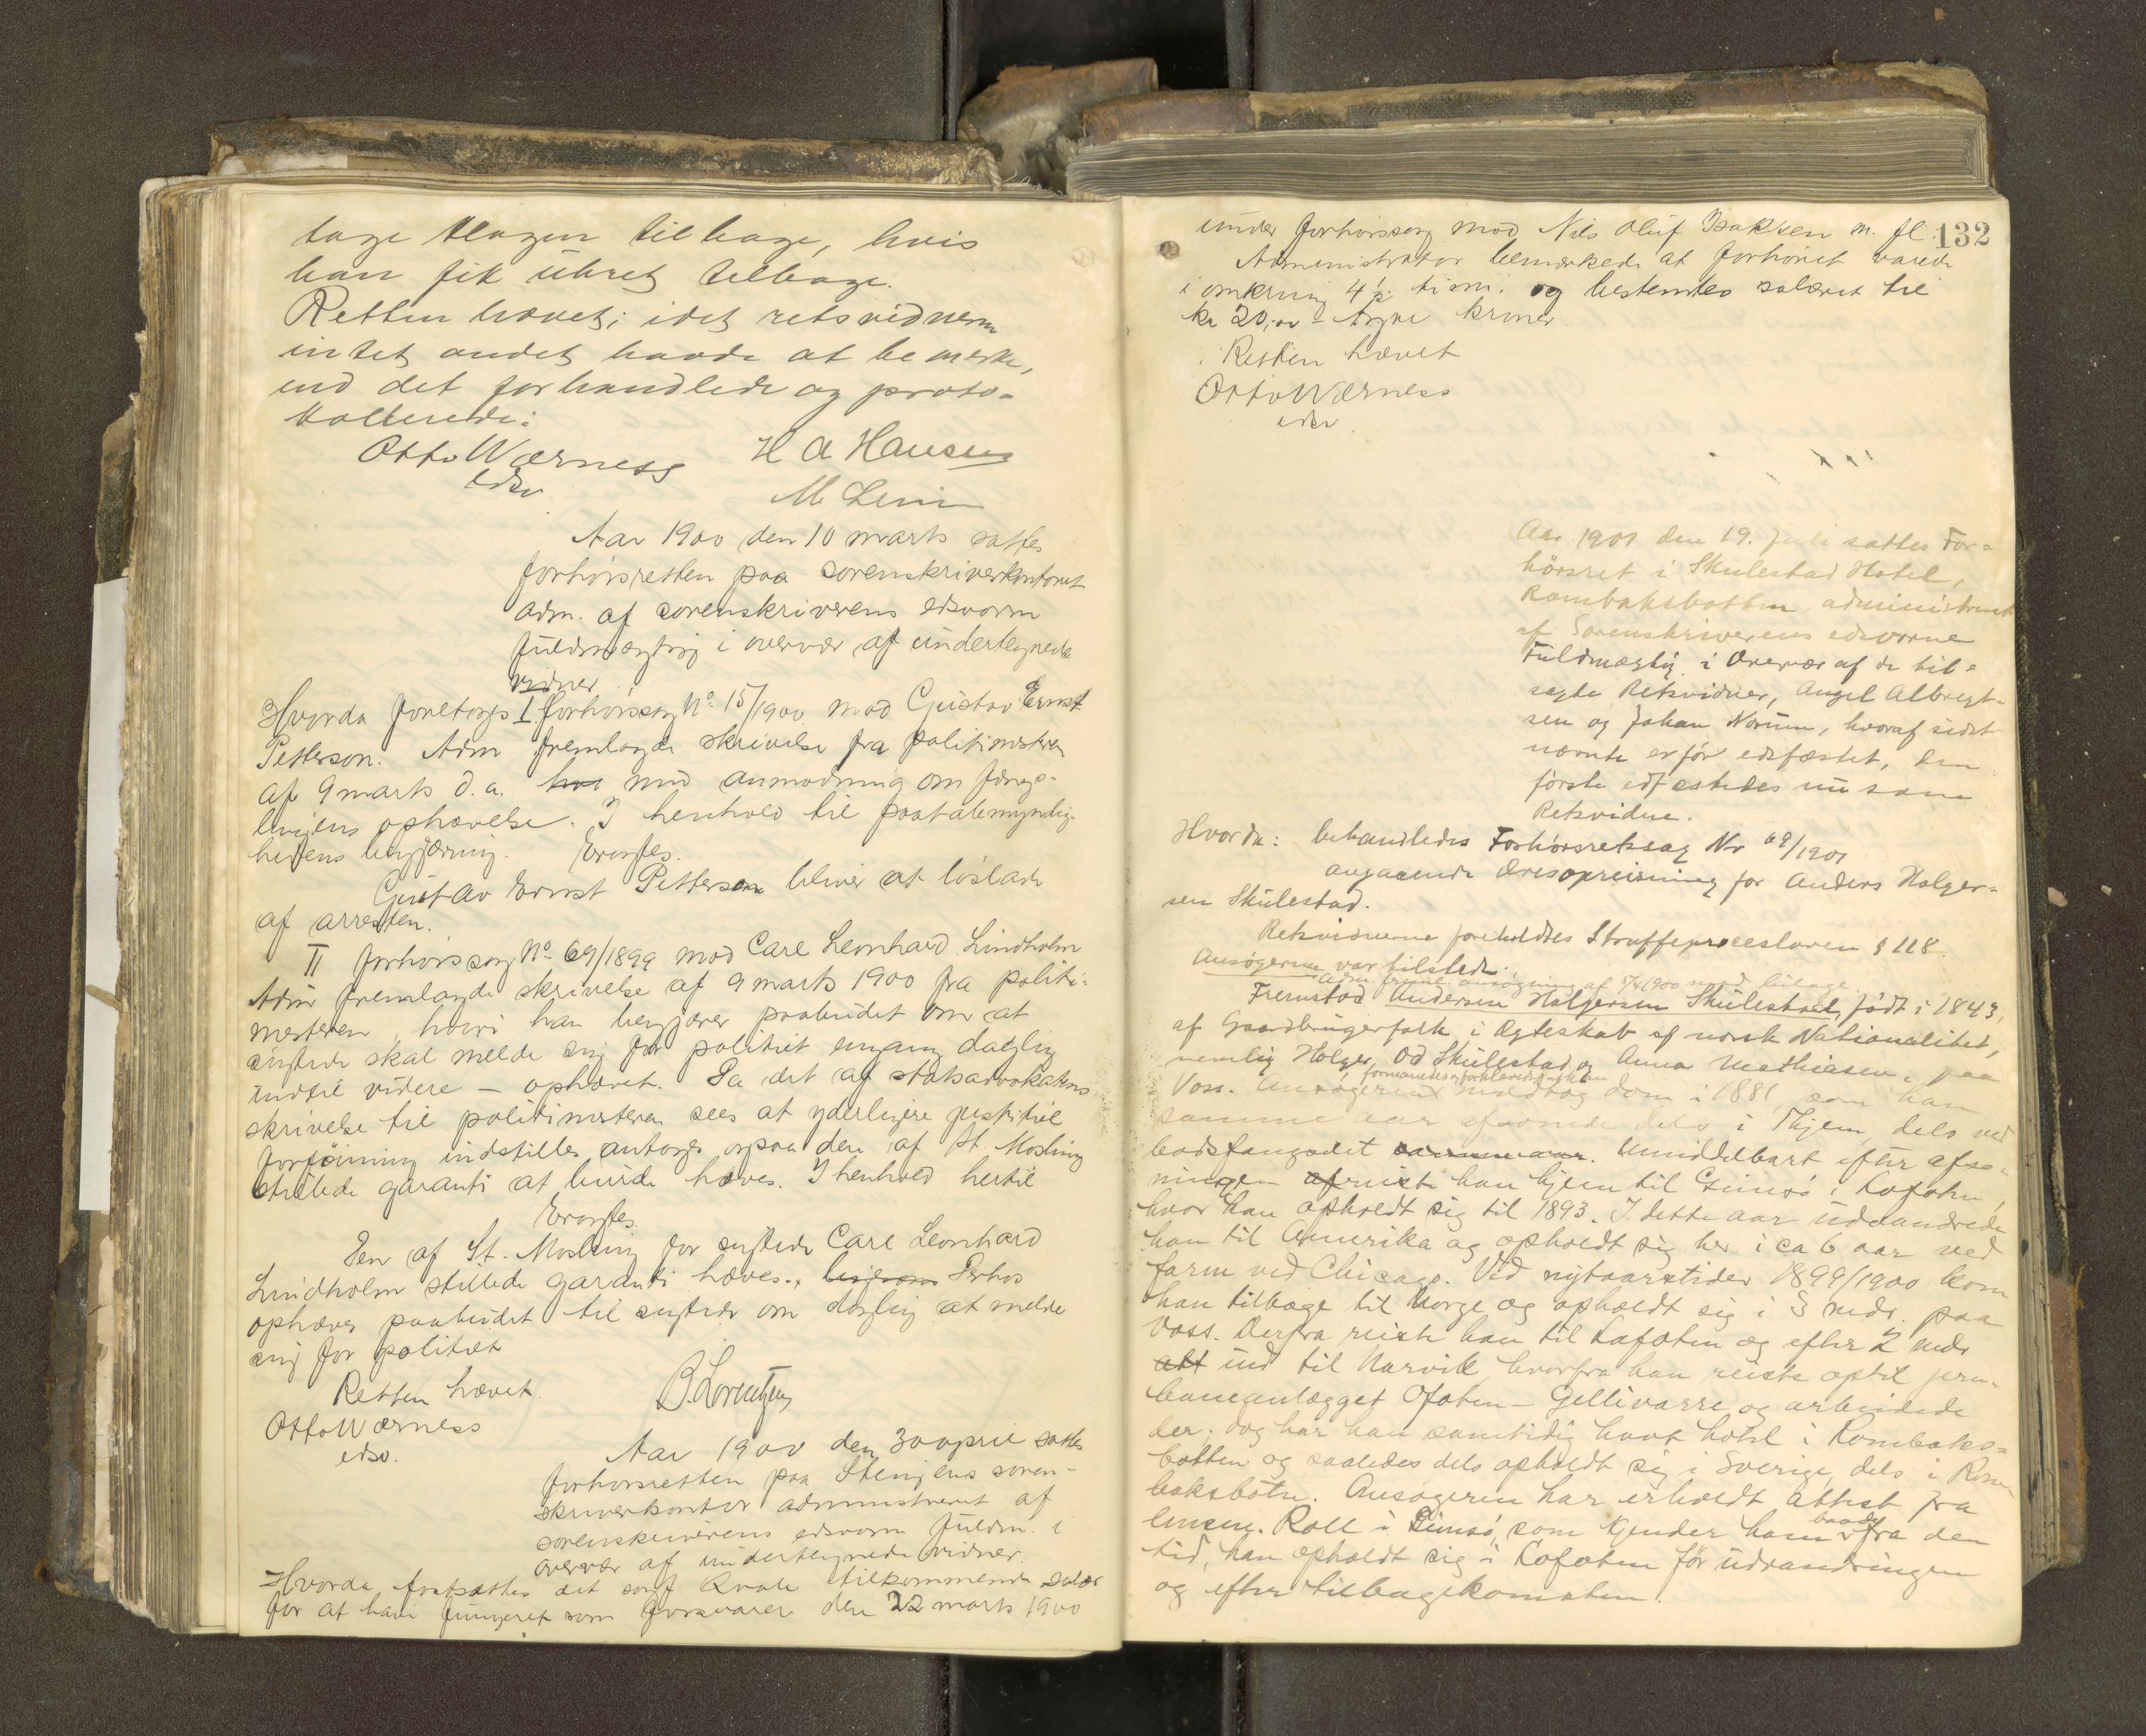 tage klagen tilbage, hvis
han fik uhret tilbage.
Retten hævet; idet retsvidnerne
intet andet havde at bemerke,
end det forhandlede og proto-
kollerede.
Otto Wærness H A Hansen
edsv.
Aar 1900 den 10 marts sattes
forhørsretten paa sorenskriverkontoret
adm. af sorenskriverens edsvorne
fuldmægtig i overvær af undertegnede
vidner
Hvorda foretoges I forhørssag No 15/1900 mod Gustav Ernst
Petterson. Adm fremlagde skrivelse fra politimesteren
af 9 marts d.a. med anmodning om fængs-
lingens ophævelse. I henhold til paatalemyndig-
hedens begjæring. Eragtes.
Gustav Ernst Petterson bliver at løslade
af arresten.
II forhørssag No 69/1899 mod Carl Leonhard Lindholm
Adm fremlagde skrivelse af 9 marts 1900 fra politi-
mesteren, hvori han begjærer paabudet om at
sigtede skal melde sig for politiet engang daglig
indtil videre — ophævet. Da det af statsadvokatens
skrivelse til politimesteren sees at yderligere justitiel
forføining indstilles antages ogsaa den af St. Mosling
stillede garanti at burde hæves. I henhold hertil
Eragtes.
Den af St. Mosling for sigtede Carl Leonhard
Lindholm stillede garanti hæves.
ophæves paabudet til sigtede om daglig at melde
sig for politiet
Retten hævet. B. Lorentzen
Otto Wærness
edsv.
Aar 1900 den 30 april sattes
forhørsretten paa Stenjens soren-
skriverkontor administreret af
sorenskriverens edsvorne fuldm. i
overvær af undertegnede vidner.
Hvorda fastsattes det sagf Kvale tilkommende salær
for at have fungeret som forsvarer den 22 marts 1900
132
under forhørssag mod Nils Oluf Isaksen m. fl.
Administrator bemærkede at forhøret varede
i omkring 4½ time. og bestemtes salæret til
kr 20,00 - tyve kroner
Retten hævet
Otto Wærness
edsv.
Aar 1901 den 19. Juli sattes For-
hörsret i Skulestad Hotel,
Rombaksbotten, administreret
af Sorenskriverens edsvorne
Fuldmægtig i Overvær af de til-
sagte Retsvidner, Angel Albregt-
sen og Johan Norum, hvoraf sidst
nævnte er för edsfæstet, den
förste edfæstedes nu som
Retsvidne.
Hvorda: behandledes Forhørsretssag Nr 68/1901
angaaende Æresopreisning for Anders Holger-
sen Skulestad.
Retsvidnerne foreholdtes Straffeprocesloven § 118.
Ansøgeren var tilstede.
Adm. freml. ansøgning af 5/4 1900 med bilage.
Fremstod Andersen Holgersen Skulestad, født i 1843,
af Gaardbrugerfolk i Ægteskab af norsk Nationalitet,
nemlig Holger Od Skulestad og Anna Mathiasen, paa
Voss. Ansøgeren modtog dom i 1881, som han
samme aar afsonede dels i Thjem, dels ved
bodsfængslet samme aar. Umiddelbart efter afso-
ningen reiste han hjem til Gimsö i Lofoten,
hvor han opholdt sig til 1893. I dette aar udvandrede
han til Amerika og opholdt sig her i ca 6 aar ved
farm ved Chicago. Ved nytaarstider 1899/1900 kom
han tilbage til Norge og opholdt sig i 3 mdr. paa
Voss. Derfra reiste han til Lofoten og efter 2 mdr
ind til Narvik, hvorfra han reiste optil jern-
baneanlægget Ofoten - Gellivarre og arbeidede
der; dog har han samtidig havt hotel i Rombaks-
botten og saaledes dels opholdt sig i Sverige, dels i Rom-
baksbotn. Ansøgeren har erholdt attest fra
lensm. Roll i Gimsö, som kjender ham baade fra den
tid, han opholdt sig i Lofoten för udvandringen
og efter tilbagekomsten.